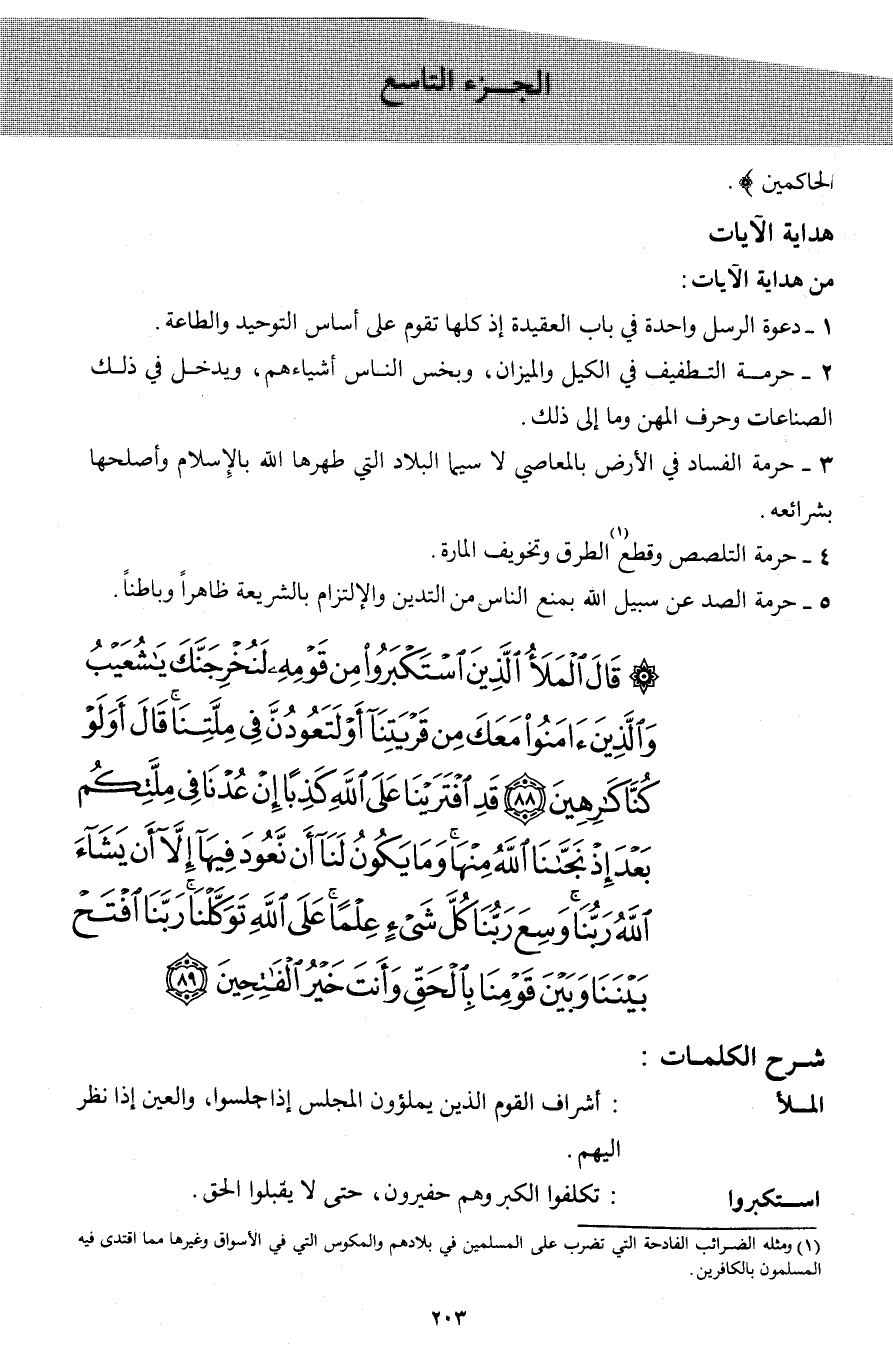 الجـزء التاسع
الحاكمين ﴾ .
هداية الآيات
من هداية الآيات :
١ ـ دعوة الرسل واحدة في باب العقيدة إذ كلها تقوم على أساس التوحيد والطاعة .
٢ ـ حرمـة التـطفيف في الكيل والميزان، وبخس النـاس أشياءهم، ويدخـل في ذلـك
الصناعات وحرف المهن وما إلى ذلك .
٣ ـ حرمة الفساد في الأرض بالمعاصي لا سيما البلاد التي طهرها الله بالإسلام وأصلحها
بشرائعه .
٤ ـ حرمة التلصص وقطع(١) الطرق وتخويف المارة .
٥ ـ حرمة الصد عن سبيل الله بمنع الناس من التدين والإلتزام بالشريعة ظاهراً وباطناً .
۞ قَالَ ٱلْمَلَأُ ٱلَّذِينَ ٱسْتَكْبَرُوا۟ مِن قَوْمِهِۦ لَنُخْرِجَنَّكَ يَـٰشُعَيْبُ
وَٱلَّذِينَ ءَامَنُوا۟ مَعَكَ مِن قَرْيَتِنَآ أَوْ لَتَعُودُنَّ فِى مِلَّتِنَا ۚ قَالَ أَوَلَوْ
كُنَّا كَـٰرِهِينَ ٨٨ قَدِ ٱفْتَرَيْنَا عَلَى ٱللَّهِ كَذِبًا إِنْ عُدْنَا فِى مِلَّتِكُم
بَعْدَ إِذْ نَجَّىٰنَا ٱللَّهُ مِنْهَا ۚ وَمَا يَكُونُ لَنَآ أَن نَّعُودَ فِيهَآ إِلَّآ أَن يَشَآءَ
ٱللَّهُ رَبُّنَا ۚ وَسِعَ رَبُّنَا كُلَّ شَىْءٍ عِلْمًا ۚ عَلَى ٱللَّهِ تَوَكَّلْنَا ۚ رَبَّنَا ٱفْتَحْ
بَيْنَنَا وَبَيْنَ قَوْمِنَا بِٱلْحَقِّ وَأَنتَ خَيْرُ ٱلْفَـٰتِحِينَ ٨٩
شـرح الكلمـات :
المـلأ : أشراف القوم الذين يملؤون المجلس إذا جلسوا، والعين إذا نظر
اليهم .
استـكبروا : تكلفوا الكبر وهم حفيرون، حتى لا يقبلوا الحق .
(١) ومثله الضـرائب الفادحة التي تضرب على المسلمين في بلادهم والمكوس التي في الأسواق وغيرها مما اقتدى فيه
المسلمون بالكافرين .
٢٠٣